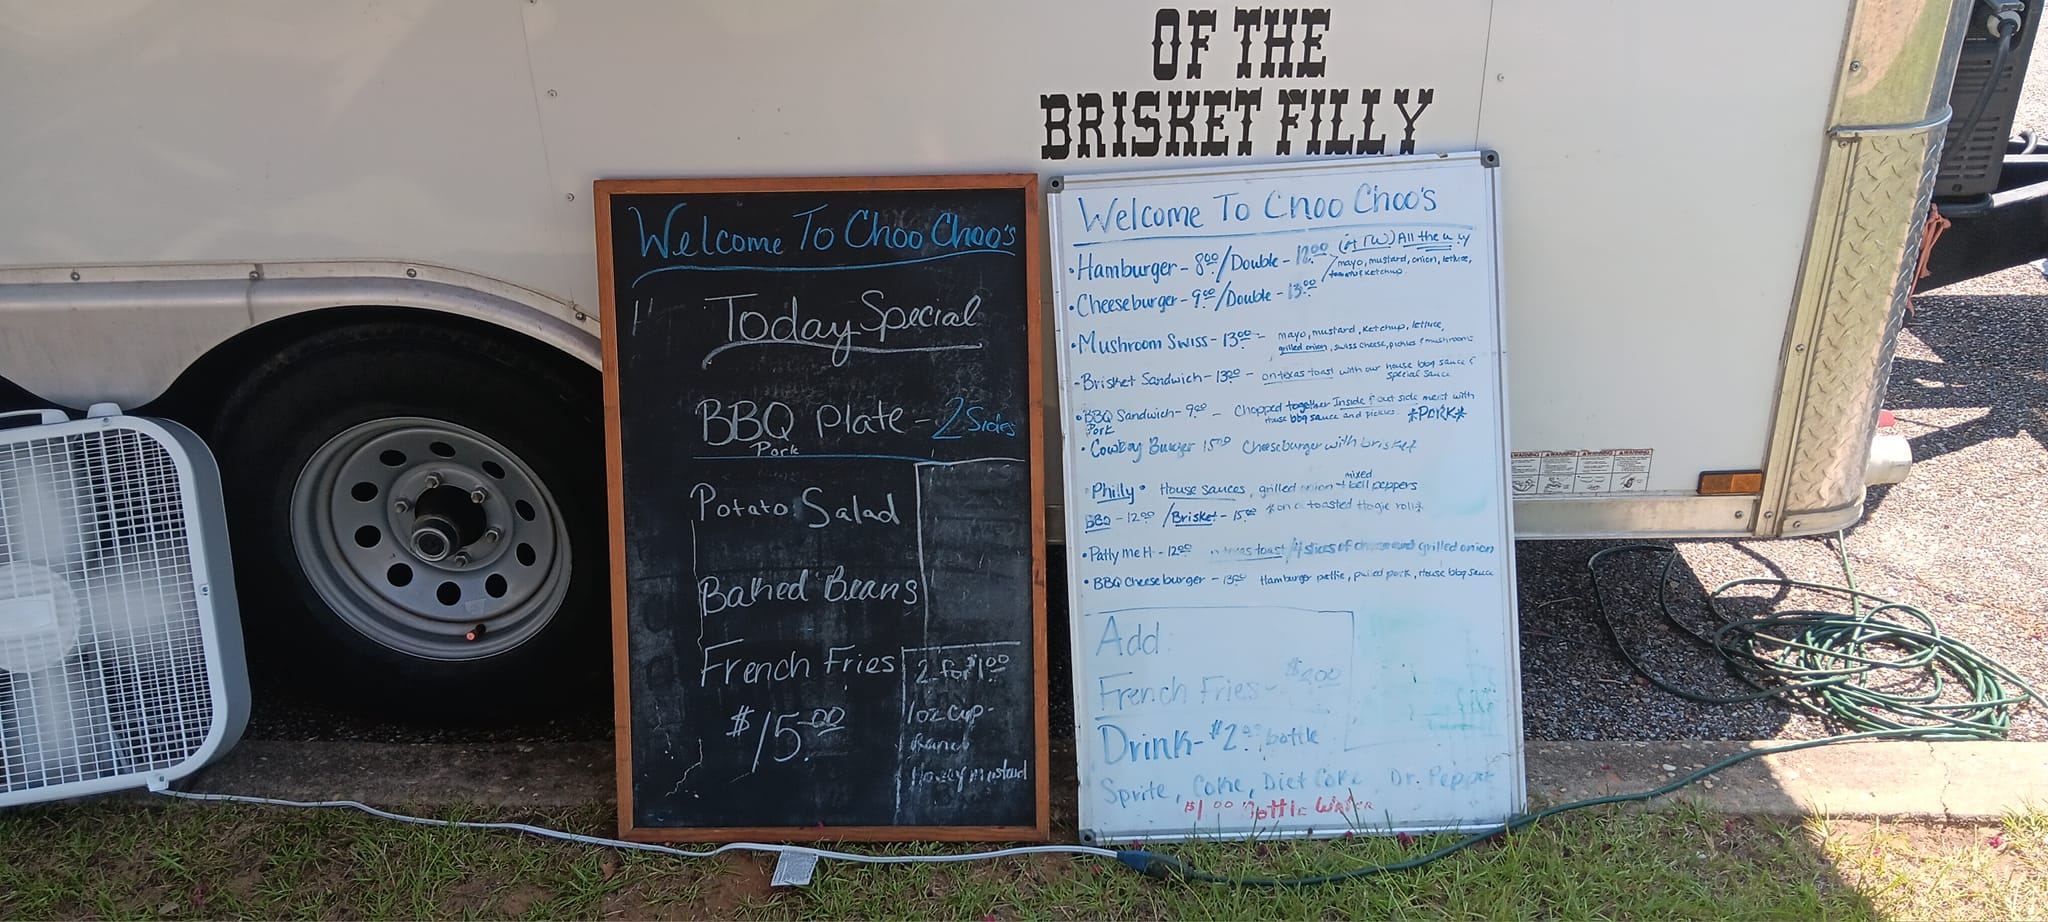 OF THE
BRISKET FILLY
Welcome To Choo Choo's
Today Special
BBQ Plate - 2 Sides
Pork
Potato Salad
Baked Beans
French Fries
$15.00
2 for $1.00
1oz cup-
Ranch
Honey mustard
Welcome To Choo Choo's
• Hamburger - 8.00 / Double - 12.00 (ATW) All the way
/ mayo, mustard, onion, lettuce,
tomato & ketchup
• Cheeseburger - 9.00 / Double - 13.00
• Mushroom Swiss - 13.00 - mayo, mustard, ketchup, lettuce,
grilled onion, swiss cheese, pickles & mushrooms
- Brisket Sandwich - 13.00 - on texas toast with our house bbq sauce &
special sauce
• BBQ Sandwich - 9.00 - Chopped together Inside & out side meat with
Pork House bbq sauce and pickles. *PORK*
• Cowboy Burger 15.00 Cheeseburger with brisket
• Philly • House sauces, grilled onion + mixed bell peppers
BBQ - 12.00 / Brisket - 15.00 * on a toasted Hogie roll *
• Patty melt - 12.00 on texas toast / 4 slices of cheese and grilled onion
• BBQ Cheeseburger - 13.00 Hamburger pattie, pulled pork, House bbq sauce
Add
French Fries -
Drink - $2.00 bottle
Sprite, Coke, Diet Coke, Dr. Pepper
$1.00 Bottle Water
WARNING WARNING WARNING WARNING